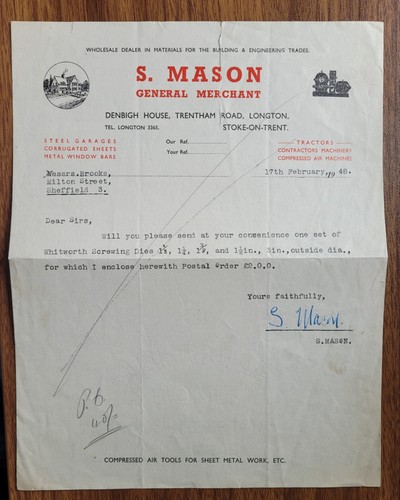 WHOLESALE DEALER IN MATERIALS FOR THE BUILDING & ENGINEERING TRADES.
S. MASON
GENERAL MERCHANT
DENBIGH HOUSE, TRENTHAM ROAD, LONGTON,
TEL. LONGTON 3363. STOKE-ON-TRENT.
STEEL GARAGES
CORRUGATED SHEETS
METAL WINDOW BARS
Our Ref.
Your Ref.
TRACTORS
CONTRACTORS MACHINERY
COMPRESSED AIR MACHINES
Messrs.Brooks,
Milton Street,
Sheffield 3.
17th February, 19 48.
Dear Sirs,
Will you please send at your convenience one set of
Whitworth Screwing Dies 1⅛, 1¼, 1⅜, and 1½in., 3in., outside dia.,
for which I enclose herewith Postal Order £2.0.0.
Yours faithfully,
S. Mason.
S.MASON.
P.O
40/-
COMPRESSED AIR TOOLS FOR SHEET METAL WORK, ETC.